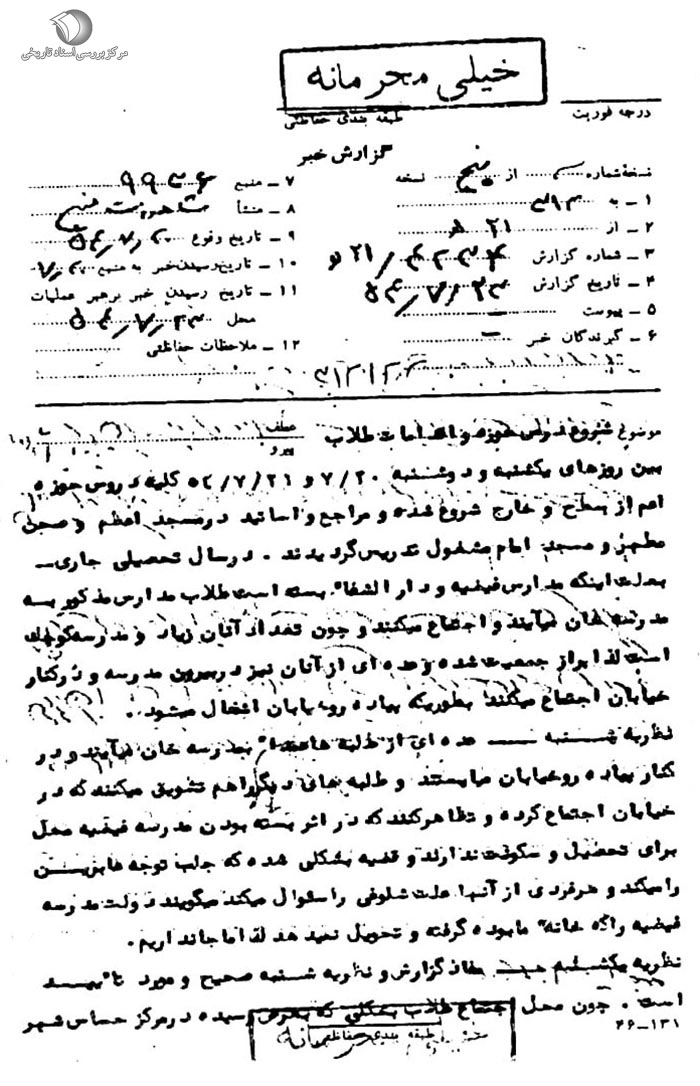 مرکز بررسی اسناد تاریخی
خیلی محرمانه
طبقه بندی حفاظتی
درجه فوریت
گزارش خبر
نسخهٔ شماره از پنج نسخه
۱ ـ به ۳۱۲
۲ ـ از ۲۱ ه
۳ ـ شماره گزارش
۴ ـ تاریخ گزارش ۵۴/۷/۲۳
۵ ـ پیوست ـ
۶ ـ گیرندگان خبر ـ
۷ ـ منبع
۸ ـ منشأ
۹ ـ تاریخ وقوع
۱۰ ـ تاریخ رسیدن خبر به منبع
۱۱ ـ تاریخ رسیدن خبر برهبر عملیات
محل
۱۲ ـ ملاحظات حفاظتی
موضوع شروع دروس حوزه و اقدامات طلاب
عطف
پیرو
بین روزهای یکشنبه و دوشنبه ۷/۲۰ و ۵۴/۷/۲۱ کلیه دروس حوزه
اعم از سطح و خارج شروع شده و مراجع و اساتید در مسجد اعظم و صحن
مطهر و مسجد امام مشغول تدریس گردیدند . در سال تحصیلی جاری ـ
بعلت اینکه مدارس فیضیه و دارالشفاء بسته است طلاب مدارس مذکور به
مدرسه خان میآیند و اجتماع میکنند و چون تعداد آنان زیاد و مدرسه کوچک
است لذا پراز جمعیت شده و عده ای از آنان نیز در بیرون مدرسه و در کنار
خیابان اجتماع میکنند بطوریکه پیاده رو خیابان اشغال میشود .
نظریه شنبه ـ عده ای از طلبه ها عمداً بمدرسه خان میآیند و در
کنار پیاده رو خیابان میایستند و طلبه های دیگر را هم تشویق میکنند که در
خیابان اجتماع کرده و تظاهر کنند که در اثر بسته بودن مدرسه فیضیه محل
برای تحصیل و سکونت ندارند و قضیه بشکلی شده که جلب توجه عابرین
را میکند و هر فردی از آنها علت شلوغی را سئوال میکند میگویند دولت مدرسه
فیضیه را که خانه ما بوده گرفته و تحویل نمیدهد لذا ما جا نداریم .
نظریه یکشنبه ـ مفاد گزارش و نظریه شنبه صحیح و مورد تأیید
است . چون محل اجتماع طلاب بشکلی که بعرض رسیده در مرکز حساس شهر
۴۶ـ۱۳۱
طبقه بندی حفاظتی